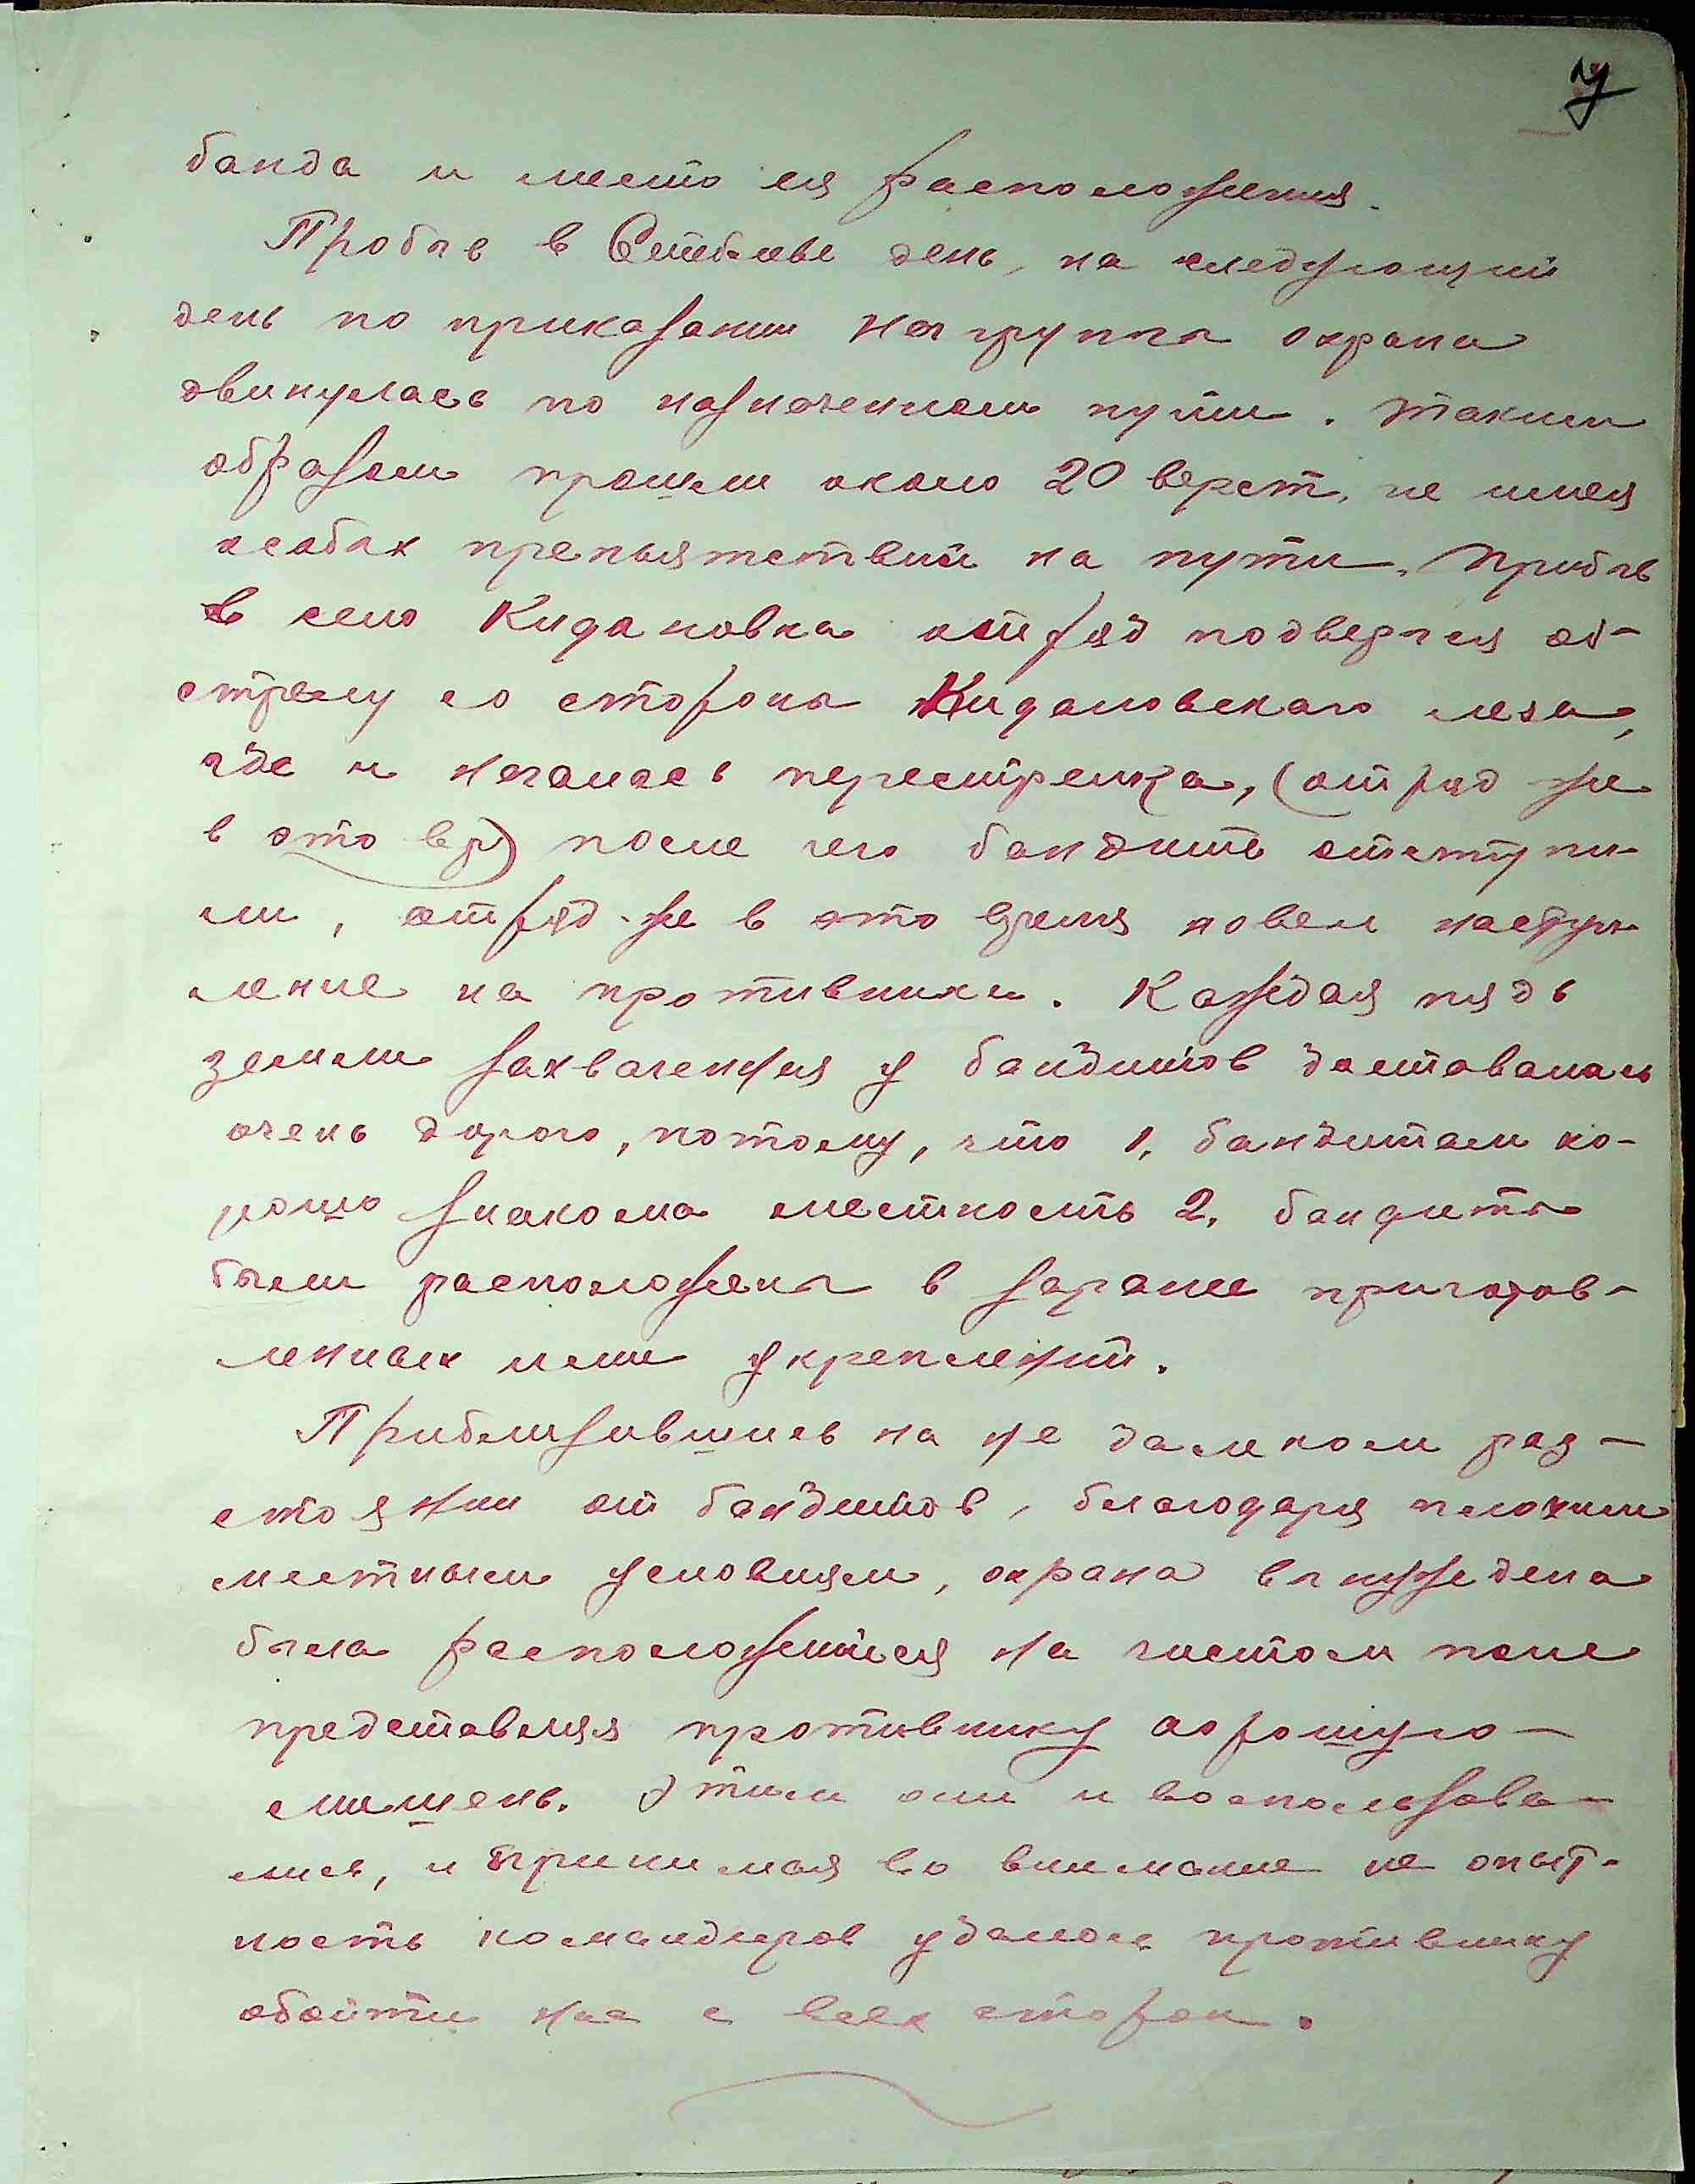 7
банда и место ея расположения.
Пробыв в Стеблеве день, на следующий
день по приказанию Нач группы охрана
двинулась по назначенном пути. Таким
образом прошли около 20 верст, не имея
особых препятствий на пути. Прибыв
в село Кидановка отряд подвергся об-
стрелу со стороны Кидановскаго леса,
где и началась перестрелка, (отряд же
в это вр) после чего бандиты отступи-
ли, отряд же в это время повел наступ-
ление на противника. Каждая пядь
земли захваченная у бандитов доставалась
очень дорого, потому, что 1, бандитам хо-
рошо знакома местность 2, бандиты
были расположены в заранее приготов-
ленных ими укреплений.
Приблизившись на не далеком раз-
стоянии от бандитов, благодаря плохим
местным условиям, охрана вынуждена
была расположится на чистом поле
представляя противнику хорошую
мишень. Этим они и воспользова-
лись, и принимая во внимание не опыт-
ность командиров удалось противнику
обойти нас с всех сторон.